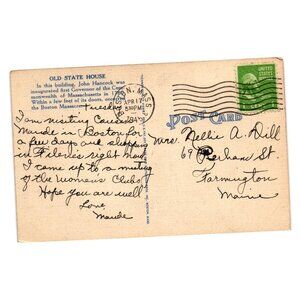 OLD STATE HOUSE
In this building, John Hancock was
inaugurated first Governor of the Com-
monwealth of Massachusetts in
Within a few feet of its doors, occurred
the Boston Massacre
BOSTON, MASS.
APR 17
PM
UNITED STATES
POST CARD
Tuesday
I am visiting Cousin
Maude in Boston for
a few days are shopping
in Filenes right now
I came up to a meeting
of the Womens Clubs
Hope you are well
Love
Maude
Mrs. Nellie A. Dill
69 Perham St.
Farmington
Maine